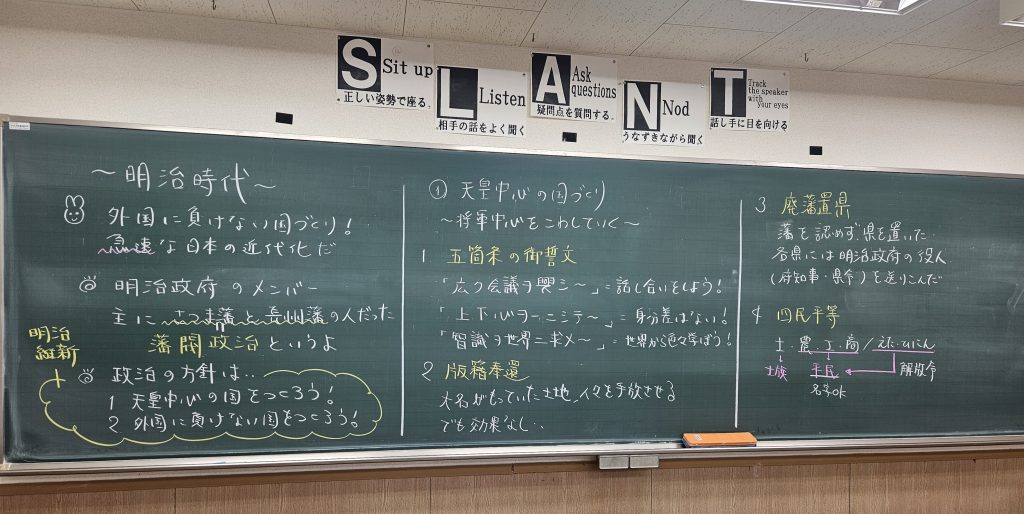 S
Sit up
正しい姿勢で座る.
L
Listen
相手の話をよく聞く
A
Ask
questions
疑問点を質問する.
N
Nod
うなずきながら聞く
T
Track
the speaker
with
your eyes
話し手に目を向ける
～明治時代～
外国に負けない国づくり!
急速な日本の近代化だ
◎ 明治政府のメンバー
主にさつま藩と長州藩の人だった
藩閥政治というよ
明治
維新
◎ 政治の方針は‥
1 天皇中心の国をつくろう!
2 外国に負けない国をつくろう!
① 天皇中心の国づくり
～将軍中心をこわしていく～
1 五箇条の御誓文
「広ク会議ヲ興シ～」=話し合いをしよう!
「上下心ヲ一ニシテ～」=身分差はない!
「智識ヲ世界ニ求メ～」=世界から色々学ぼう!
2 版籍奉還
大名がもっていた土地、人々を手放させる
でも効果なし‥
3 廃藩置県
藩を認めず、県を置いた
各県には明治政府の役人
(府知事・県令)を送りこんだ
4 四民平等
士・農・工・商/えた・ひにん
士族 平民 解放令
名字OK